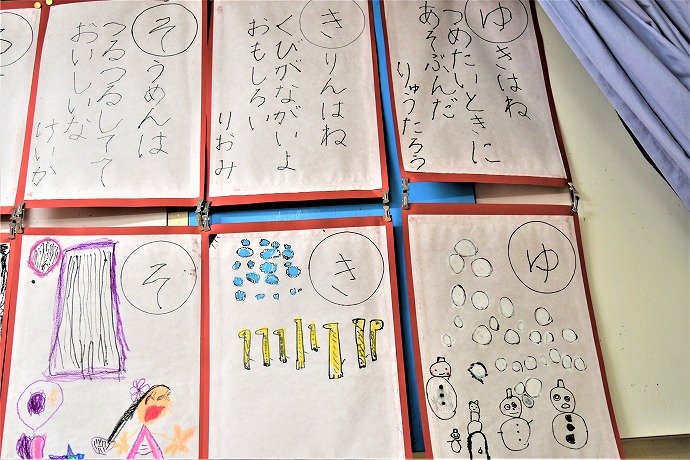 ゆきはね
つめたいときに
あそぶんだ
りゅうたろう
きりんはね
くびがながいよ
おもしろい
りおみ
そうめんは
つるつるしてて
おいしいな
けいか
ゆ
き
そ